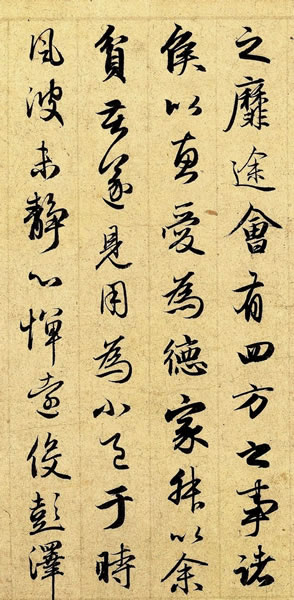 之靡途會有四方之事諸
侯以惠愛為德家叔以余
貧苦遂見用為小邑于時
風波未靜心憚遠役彭澤